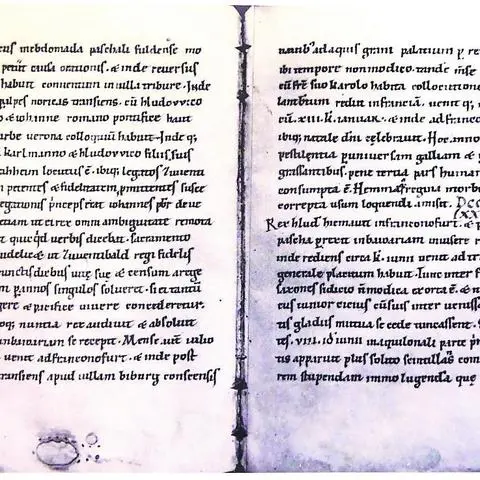 cus mebdomada paschali fuldense mo
petiit causa orationis. & inde reversus
habuit conventum in villa tribure. Inde
alpes noricas transiens. cū hludovvico
& iohanne romano pontifice haut
urbe verona colloquiū habuit. Inde q;
karlmanno & hludovvico filiis suis
locutus ē. ibiq; legatos
petentes & fidelitatem pmittentes susce
legationis princeps erat iohannes pbr de ue
etiam ut ei rex omni ambiguitate remota
quicqd verbis dicebat. sacramento
& ut Zuuentibald regi fidelis
cunctis diebus vite sue & censum a rege
p annos singulos solveret. si ei tantū
gere & pacifice vivere concederetur.
oq; nuntia rex audivit & absolvit
inbaivuariam se recepit. Mense vō iulio
venit ad franconofurt. & inde post
transiens apud villam biburg consensis
navib; ad aquis grani palatium p re
ibi tempore non modico. tandē mse
cū frē suo karolo habita collocutione
redit in franciā. venit q;
cū. xiii. k. ianuar. & inde ad
ibiq; natale dnī celebravit. Hoc anno
pestilentia p universam galliam &
grassantibus. pene tertia pars human
consumpta ē. Hemma regina morbo
correpta usum loquendi amisit. DCCC
LXX
Rex hlud hiemavit in franconofurt. &
pascha in baivuariam invisere
inde rediens circa k. iunii venit ad tr
generale placitum habuit. Tunc inter f
saxones suscio n modica exorta ē. & n
cus iunior eius cū suis inter venisse
tis gladiis mutua se cede truncassent.
tis. viii. id iunii in aquilonali parte
tis apparuit plus solito scintillās com
rem stupendam immo lugendā que